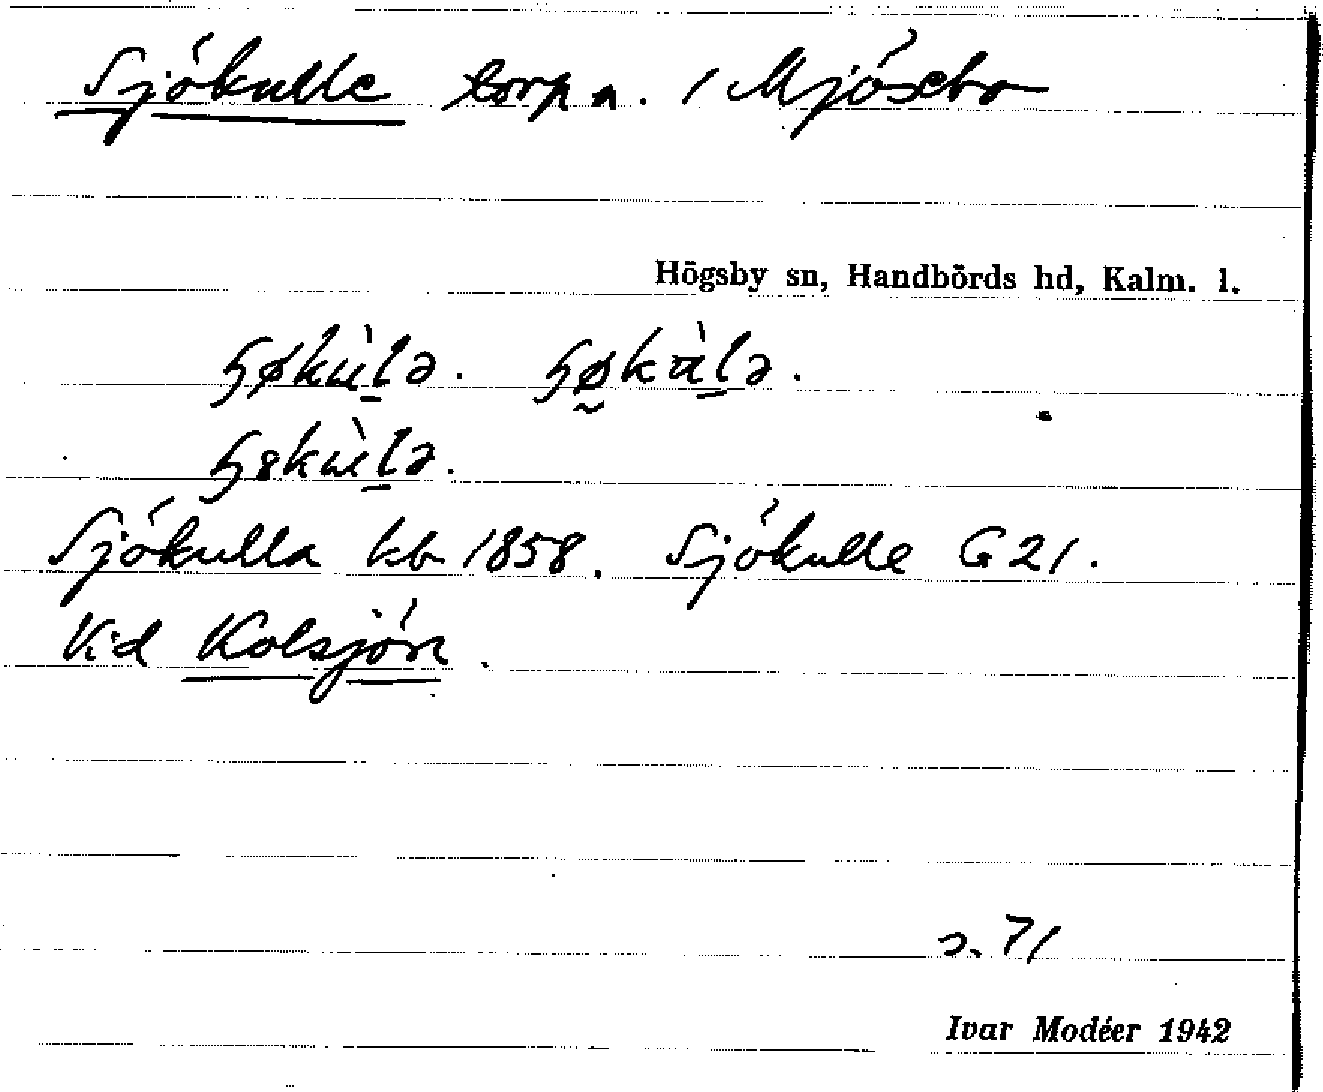 Sjökulle torp n. / Mjösebo
Högsby sn, Handbörds hd, Kalm. l.
Sjökulla kb 1858. Sjökulle G 21.
Vid Kolsjön.
s. 71
Ivar Modéer 1942